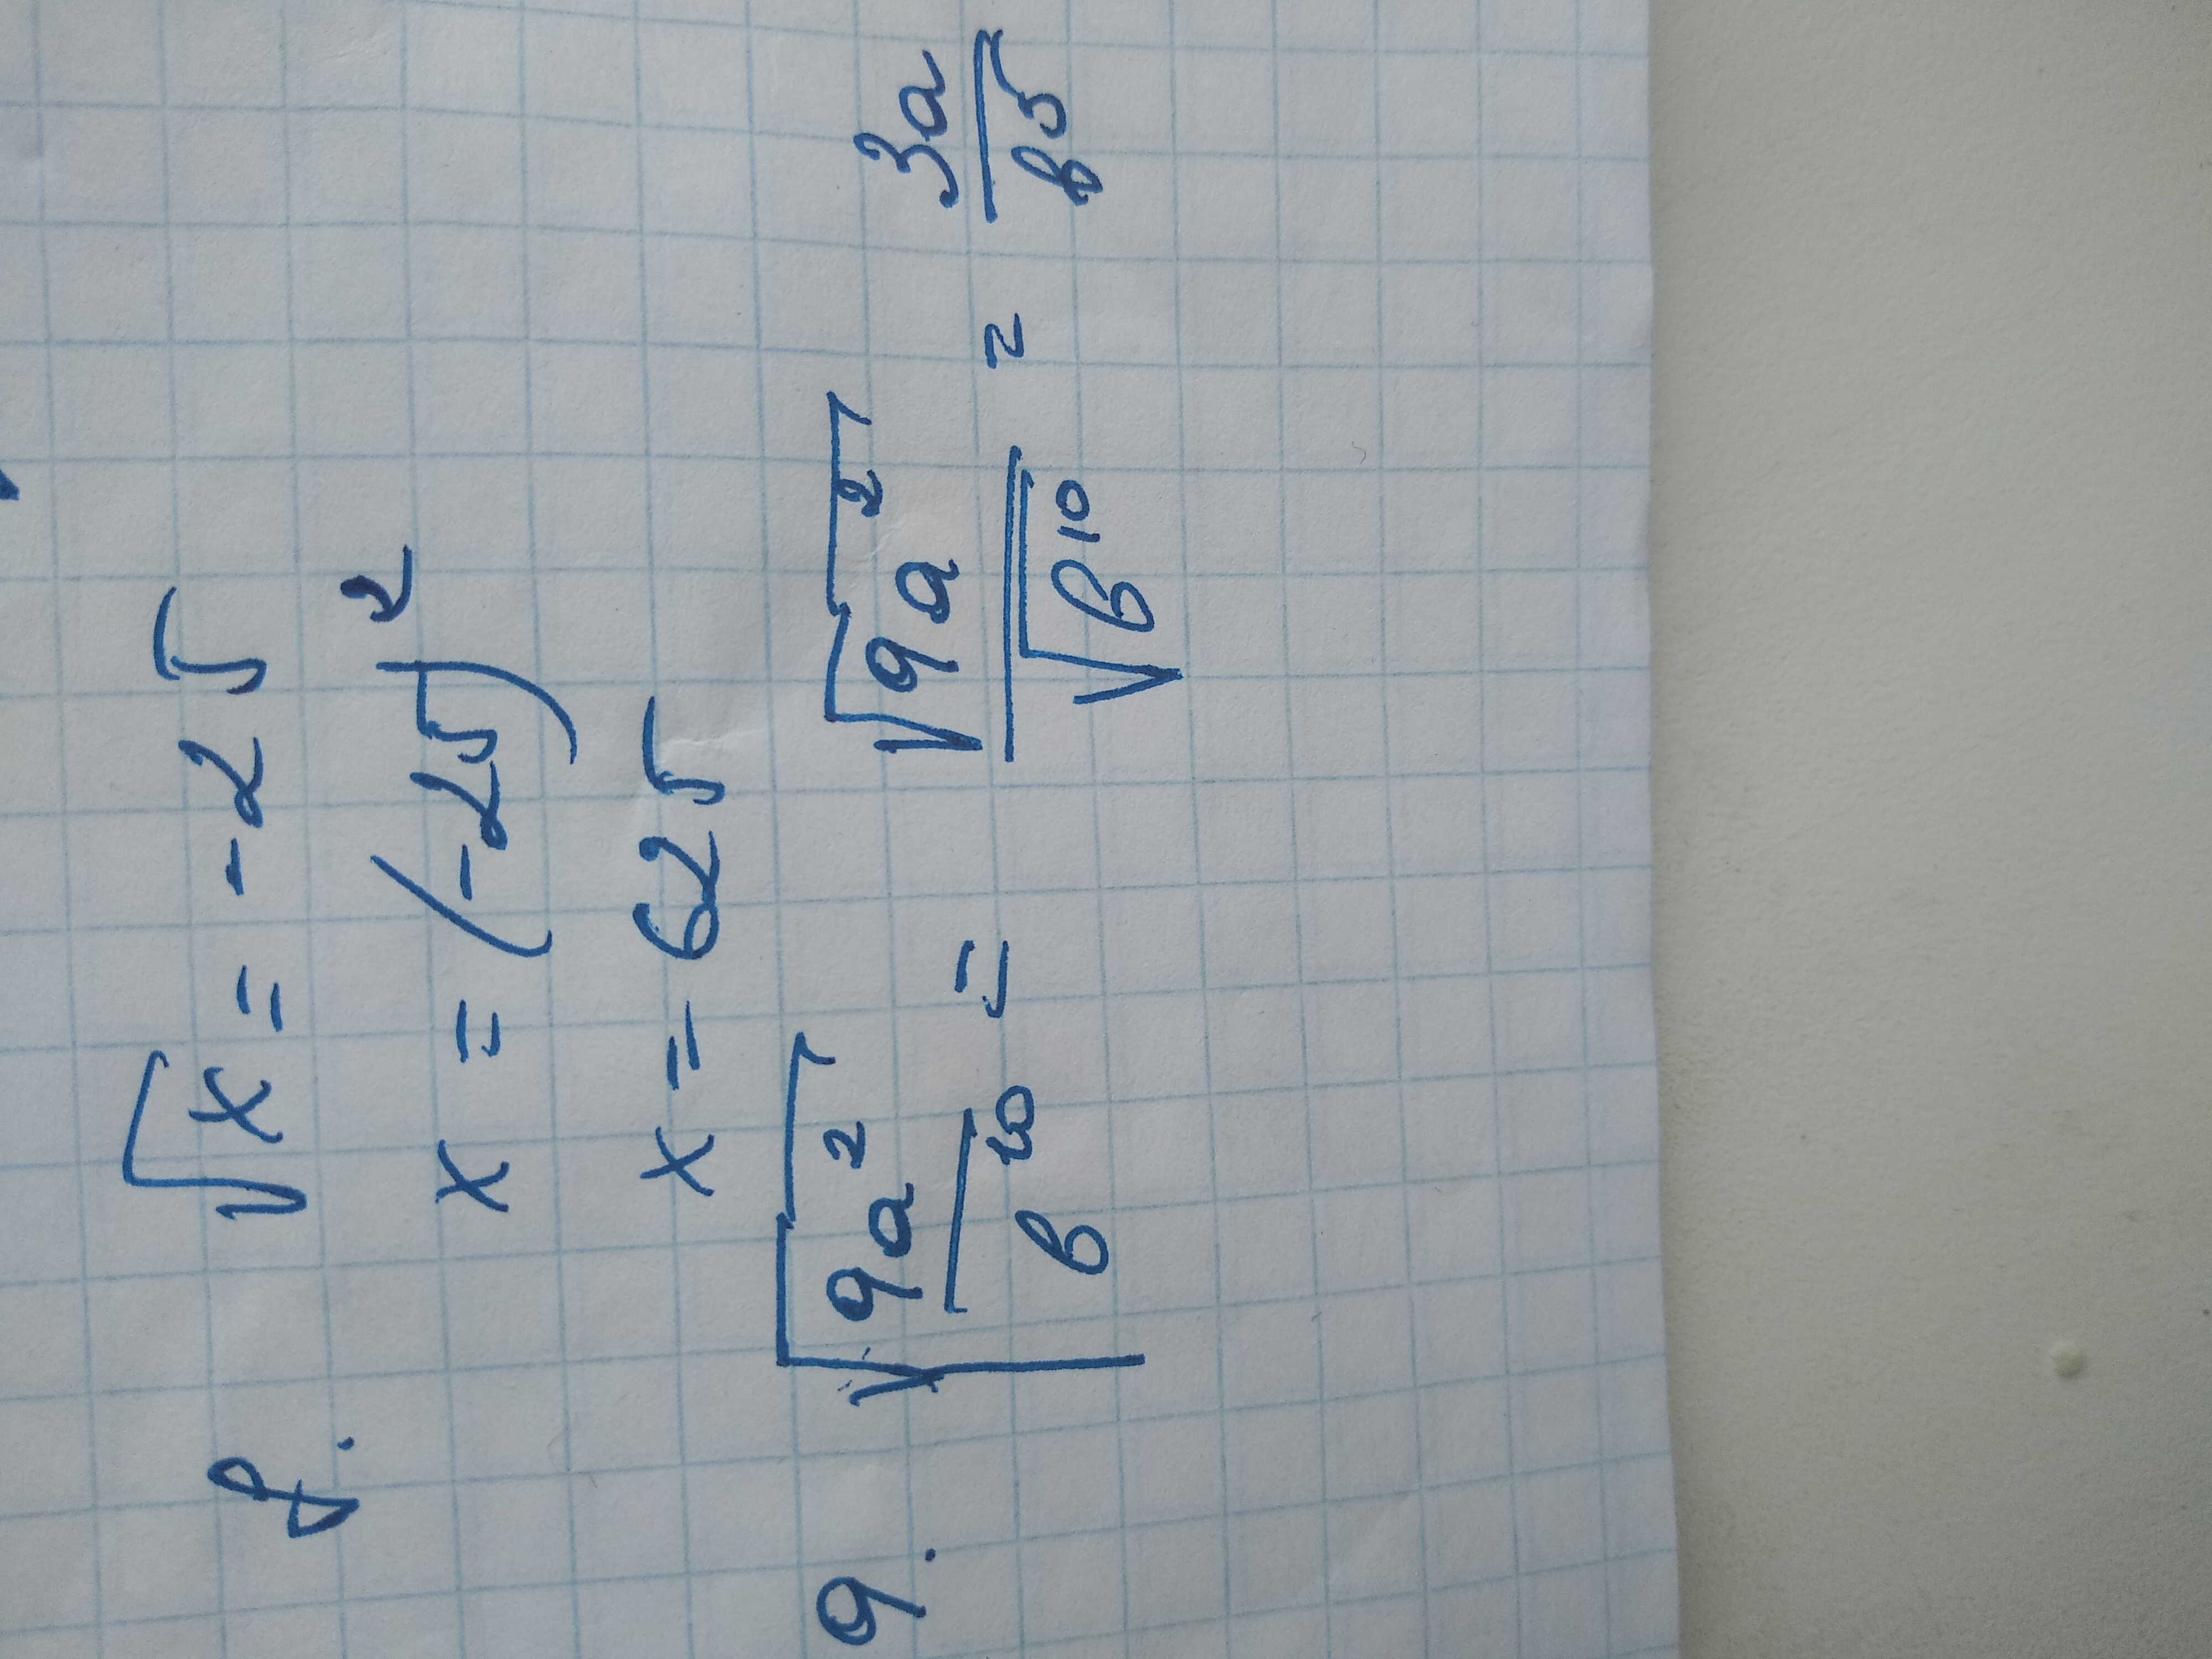 8. √x = -25
x = (-25)²
x = 625
9. √(9a²/в¹⁰) = √(9a²)/√(в¹⁰) = 3a/в⁵